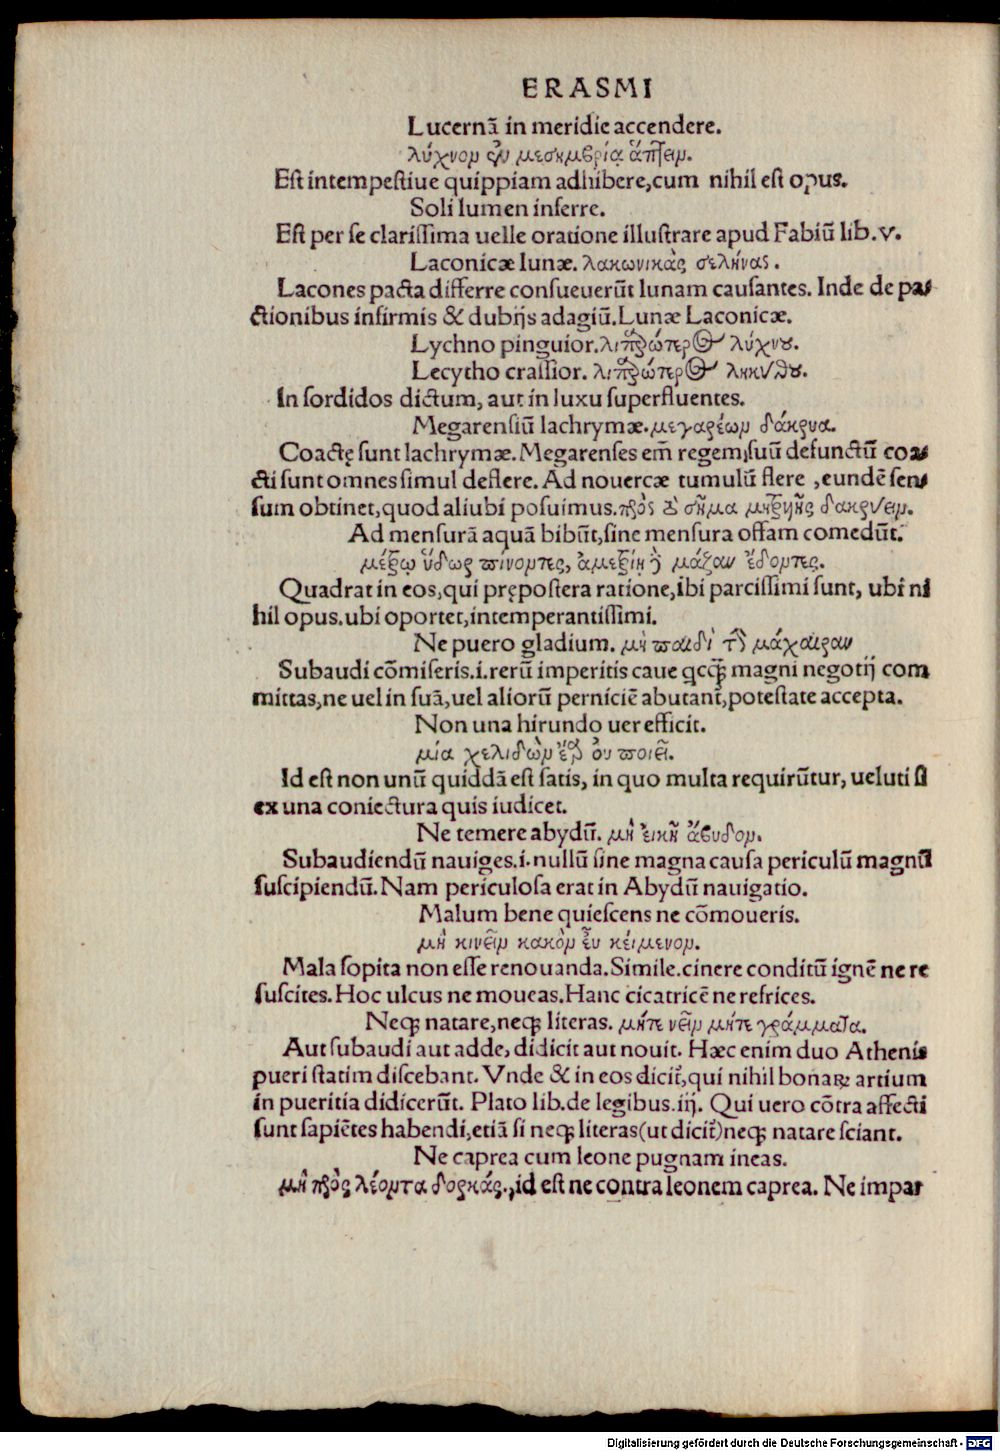 ERASMI
Lucernā in meridie accendere.
λύχνον ἐν μεσημβρίᾳ ἅπτειν.
Est intempestiue quippiam adhibere,cum nihil est opus.
Soli lumen inferre.
Est per se clarissima uelle oratione illustrare apud Fabiū lib.v.
Laconicæ lunæ. λακωνικὰς σελήνας.
Lacones pacta differre consueuerūt lunam causantes. Inde de pa-
ctionibus infirmis & dubijs adagiū.Lunæ Laconicæ.
Lychno pinguior.λιπαρώτερος λύχνου.
Lecytho crassior. λιπαρώτερος ληκύθου.
In sordidos dictum, aut in luxu superfluentes.
Megarensiū lachrymæ.μεγαρέων δάκρυα.
Coactę sunt lachrymæ.Megarenses em̄ regem,suū defunctū coa-
cti sunt omnes simul deflere. Ad nouercæ tumulū flere ,eundē sen-
sum obtinet,quod aliubi posuimus.πρὸς τὸ σῆμα μητρυιῆς δακρύειν.
Ad mensurā aquā bibūt,sine mensura offam comedūt.
μέτρῳ ὕδωρ πίνοντες, ἀμετρίῃ δὲ μάζαν ἔδοντες.
Quadrat in eos,qui prępostera ratione,ibi parcissimi sunt, ubi ni
hil opus.ubi oportet,intemperantissimi.
Ne puero gladium. μὴ παιδὶ τὴν μάχαιραν
Subaudi cōmiseris.i.rerū imperitis caue qcq̄ꝫ magni negotij com
mittas,ne uel in suā,uel aliorū perniciē abutant̄,potestate accepta.
Non una hirundo uer efficit.
μία χελιδὼν ἔαρ οὐ ποιεῖ.
Id est non unū quiddā est satis, in quo multa requirūtur, ueluti si
ex una coniectura quis iudicet.
Ne temere abydū. μὴ εἰκῆ ἄβυδον.
Subaudiendū nauiges.i.nullū sine magna causa periculū magnū
suscipiendū.Nam periculosa erat in Abydū nauigatio.
Malum bene quiescens ne cōmoueris.
μὴ κινεῖν κακὸν εὖ κείμενον.
Mala sopita non esse renouanda.Simile.cinere conditū ignē ne re
suscites.Hoc ulcus ne moueas.Hanc cicatricē ne refrices.
Neqꝫ natare,neqꝫ literas. μήτε νεῖν μήτε γράμματα.
Aut subaudi aut adde, didicit aut nouit. Hæc enim duo Athenis
pueri statim discebant. Vnde & in eos dicit̄,qui nihil bonaꝝ artium
in pueritia didicerūt. Plato lib.de legibus.iij. Qui uero cōtra affecti
sunt sapiētes habendi,etiā si neqꝫ literas(ut dicit̄)neqꝫ natare sciant.
Ne caprea cum leone pugnam ineas.
μὴ πρὸς λέοντα δορκάς.,id est ne contra leonem caprea. Ne impar
Digitalisierung gefördert durch die Deutsche Forschungsgemeinschaft - DFG